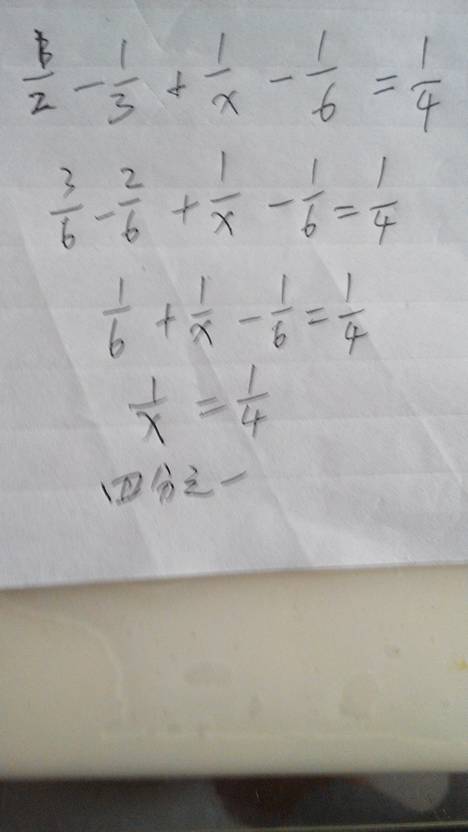 1/2 - 1/3 + 1/x - 1/6 = 1/4
3/6 - 2/6 + 1/x - 1/6 = 1/4
1/6 + 1/x - 1/6 = 1/4
1/x = 1/4
四分之一